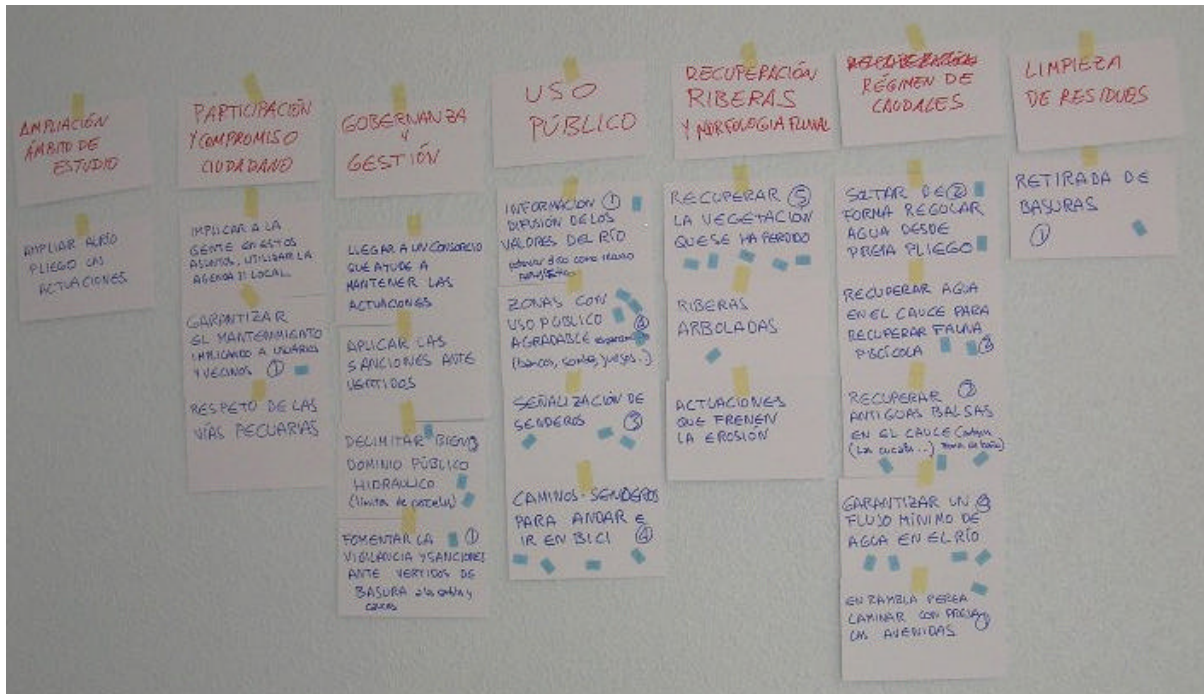 AMPLIACIÓN
ÁMBITO DE
ESTUDIO
AMPLIAR AL RÍO
PLIEGO LAS
ACTUACIONES
PARTICIPACIÓN
Y COMPROMISO
CIUDADANO
IMPLICAR A LA
GENTE EN ESTOS
ASUNTOS, UTILIZAR LA
AGENDA 21 LOCAL
GARANTIZAR
EL MANTENIMIENTO
IMPLICANDO A USUARIOS
Y VECINOS 1
RESPETO DE LAS
VÍAS PECUARIAS
GOBERNANZA
Y
GESTIÓN
LLEGAR A UN CONSORCIO
QUE AYUDE A
MANTENER LAS
ACTUACIONES
APLICAR LAS
SANCIONES ANTE
VERTIDOS
DELIMITAR BIEN
DOMINIO PÚBLICO
HIDRAULICO
(límites de parcelas)
FOMENTAR LA 1
VIGILANCIA Y SANCIONES
ANTE VERTIDOS DE
BASURA a las ramblas y
cauces
USO
PÚBLICO
INFORMACIÓN 1
DIFUSIÓN DE LOS
VALORES DEL RÍO
como
ZONAS CON
USO PÚBLICO
AGRADABLE
(bancos, sombra, juegos...)
SEÑALIZACIÓN DE
SENDEROS 3
CAMINOS-SENDEROS
PARA ANDAR E
IR EN BICI 4
RECUPERACIÓN
RIBERAS
Y MORFOLOGIA FLUVIAL
RECUPERAR 5
LA VEGETACION
QUE SE HA PERDIDO
RIBERAS
ARBOLADAS
ACTUACIONES
QUE FRENEN
LA EROSIÓN
RÉGIMEN DE
CAUDALES
SOLTAR DE 2
FORMA REGULAR
AGUA DESDE
PRESA PLIEGO
RECUPERAR AGUA
EN EL CAUCE PARA
RECUPERAR FAUNA
PISCÍCOLA 2
RECUPERAR
ANTIGUAS BALSAS
EN EL CAUCE
GARANTIZAR UN
FLUJO MÍNIMO DE
AGUA EN EL RÍO
EN RAMBLA PEREA
LAMINAR CON PRESA
LAS AVENIDAS
LIMPIEZA
DE RESIDUOS
RETIRADA DE
BASURAS
1